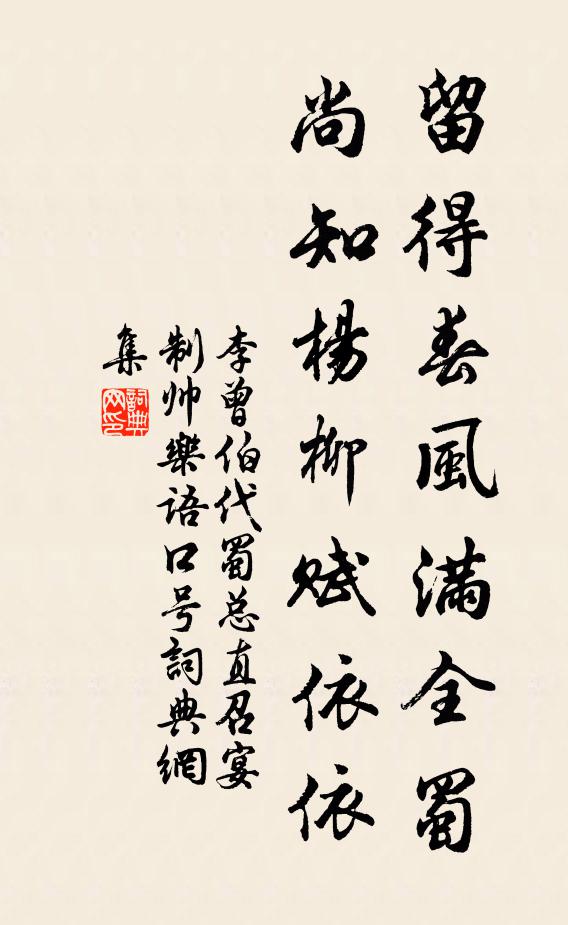 留得春風滿全蜀
尚知楊柳賦依依
李曾伯代蜀总直召宴
制帅樂語口号詞典網
集
詞典
网印